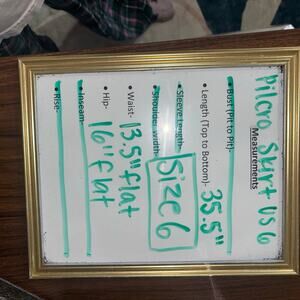 Pilcro Skirt US 6
Measurements
• Bust (Pit to Pit)-
• Length (Top to Bottom)- 35.5"
• Sleeve Length-
• Shoulder Width-
Size 6
• Waist- 13.5" flat
• Hip- 16" flat
• Inseam-
• Rise-